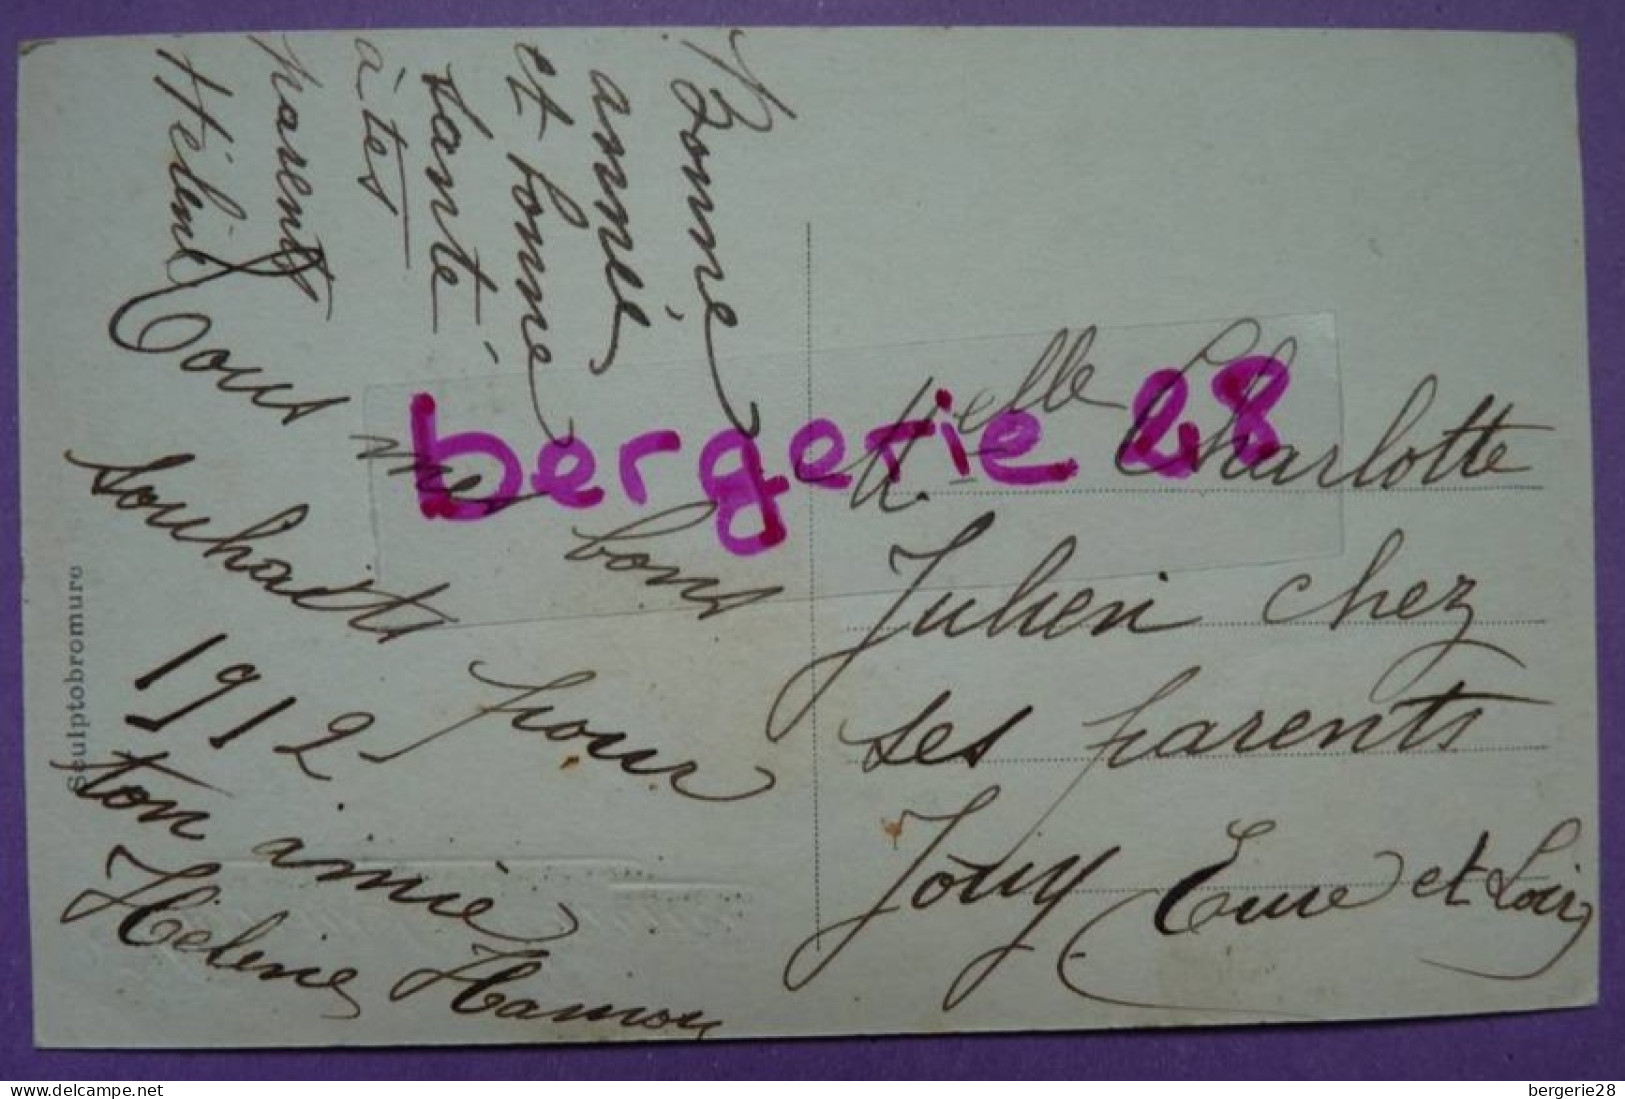 Bonne
année
et bonne
santé
à tes
parents
Hélène
Tous mes bons
souhaits pour
1912
ton amie
Hélène Hamon
Sculptobromure
Melle Charlotte
Julien chez
ses parents
Jouy Eure et Loir
bergerie 28
www.delcampe.net
bergerie28